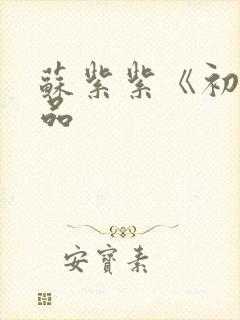 蘇紫紫《初
品
安寶素